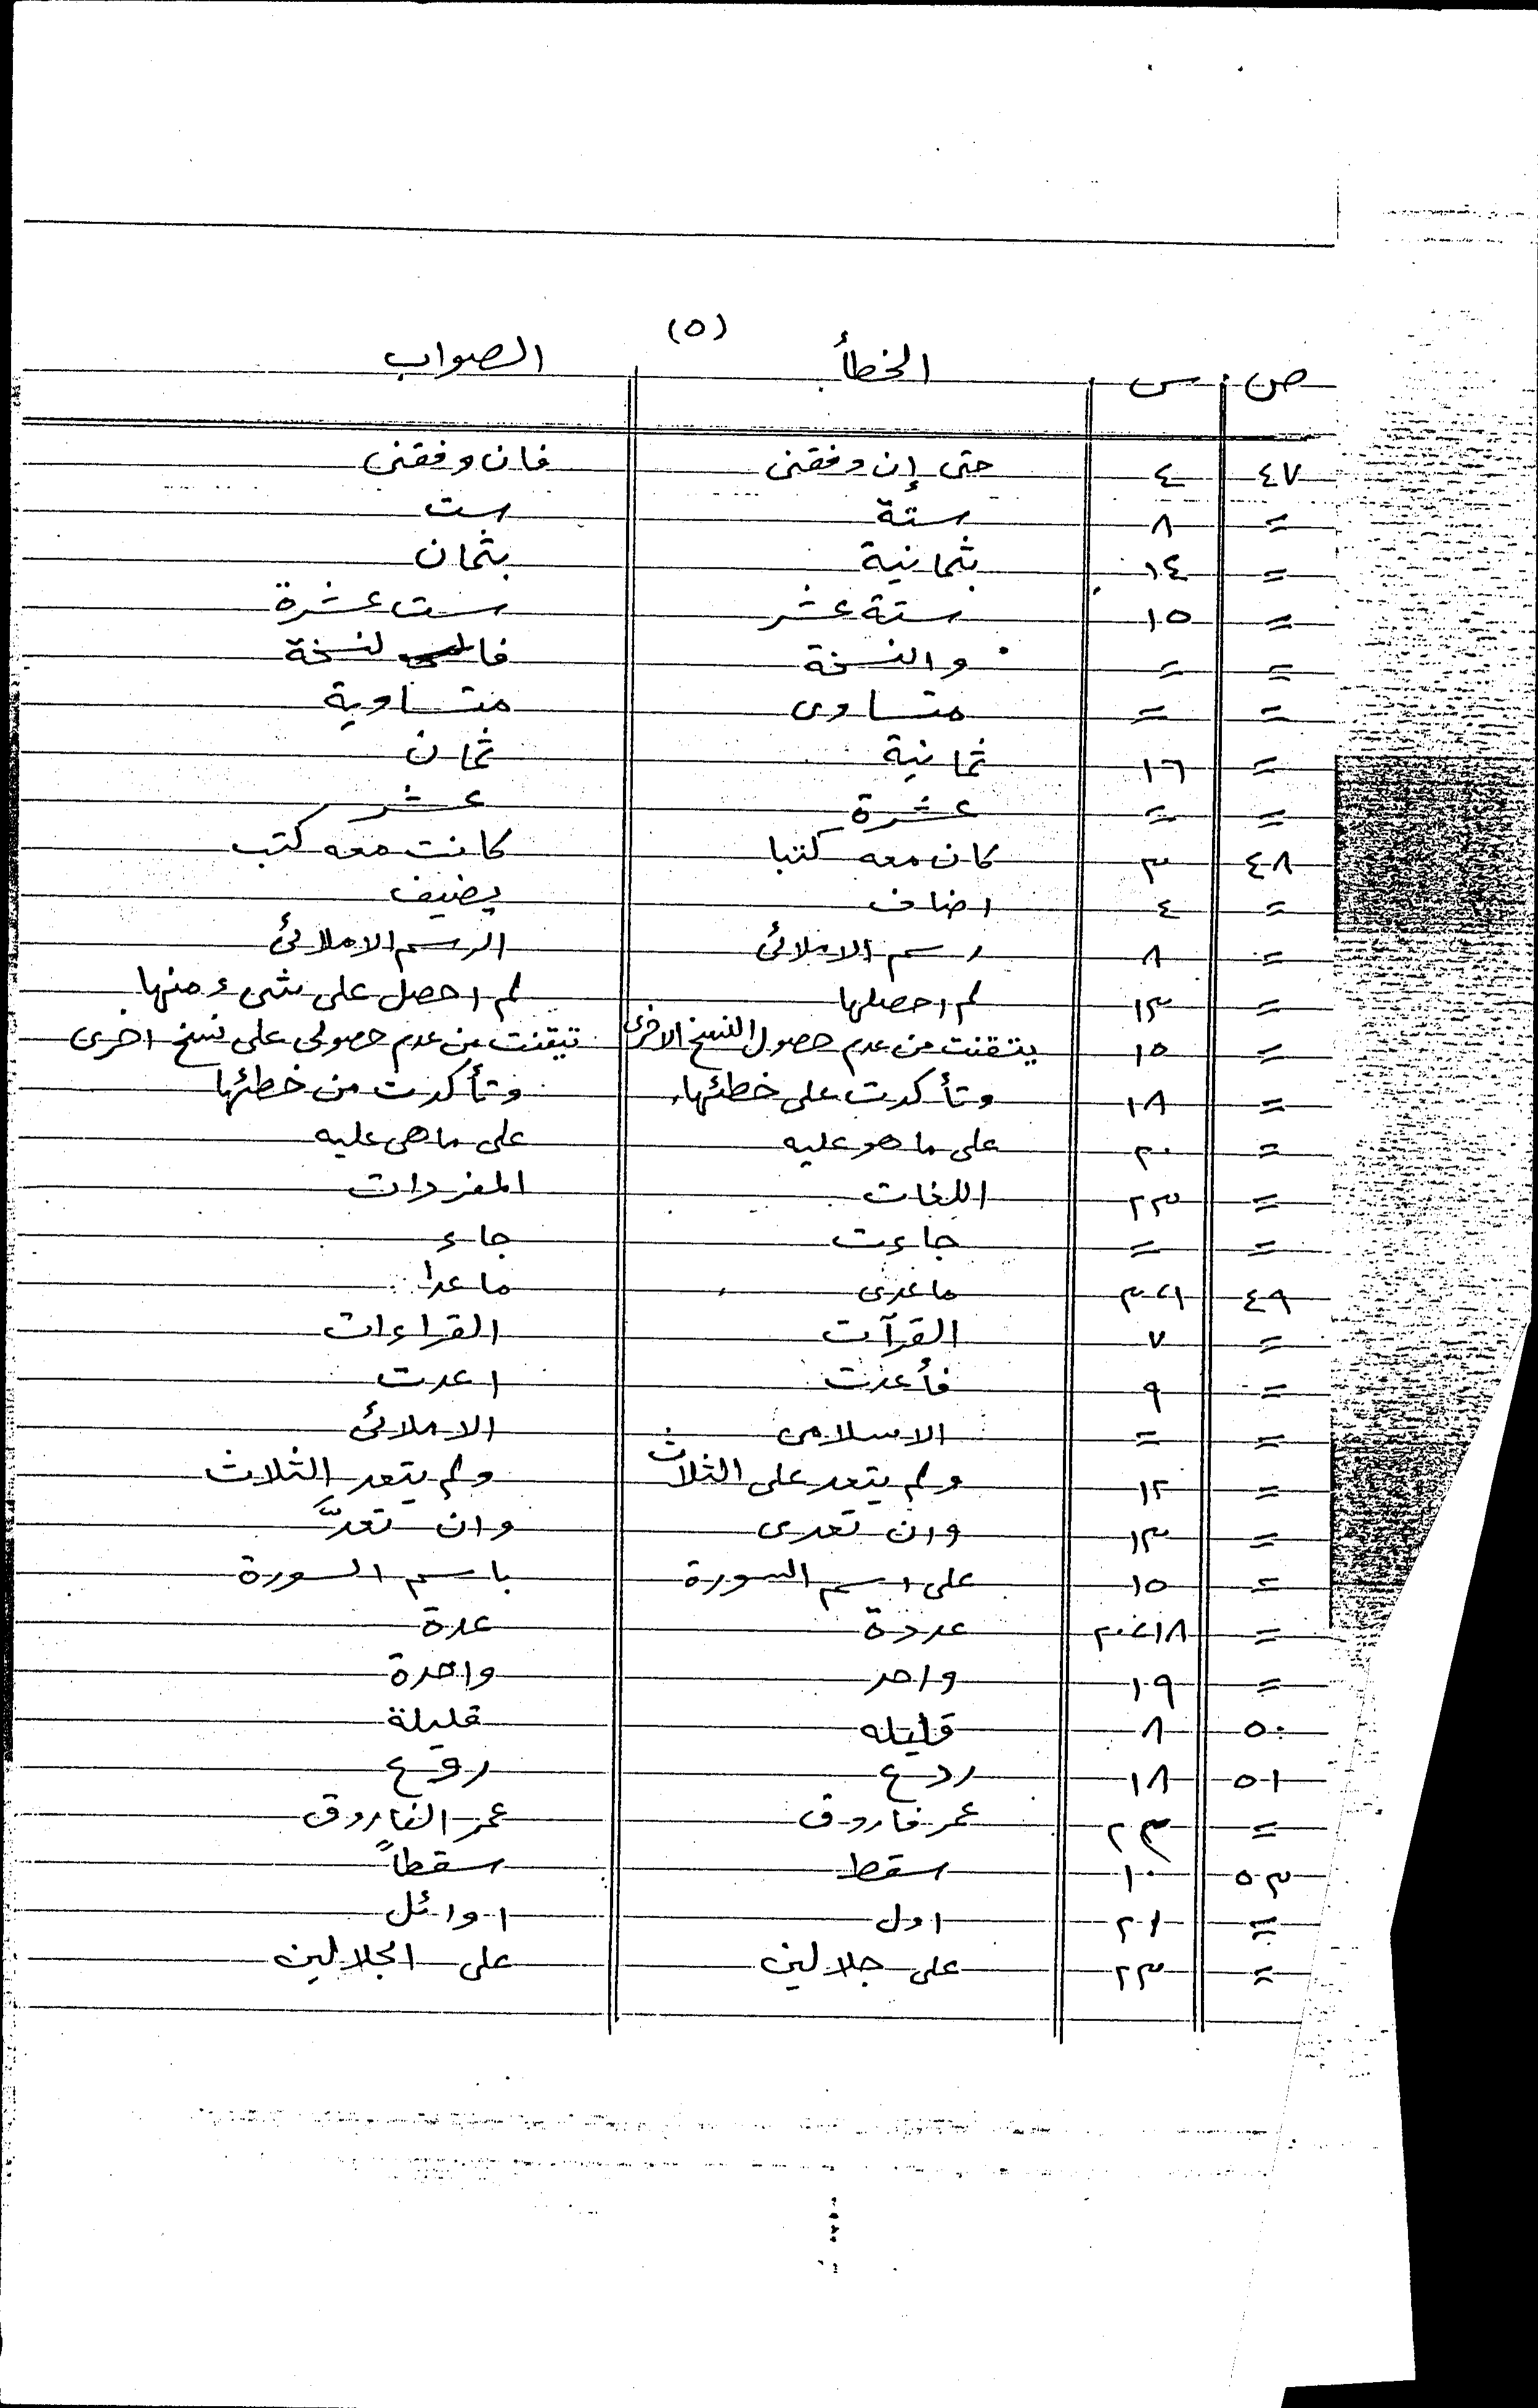 (٥)
ص س الخطأ الصواب
٤٧ ٤ حتى إن وفقنى فان وفقنى
= ٨ ستة ست
= ١٤ بثمانية بثمان
= ١٥ ستة عشر ست عشرة
= = والنسخة فالنسخة
= = متساوى متساوية
= ١٦ ثمانية ثمان
= = عشرة عشر
٤٨ ٣ كان معه كتبا كانت معه كتب
= ٤ اضاف يضيف
= ٨ رسم الاملائى الرسم الاملائى
= ١٣ لم احصلها لم احصل على شىء منها
= ١٥ يتقنت من عدم حصول النسخ الاخرى تيقنت من عدم حصولى على نسخ اخرى
= ١٨ وتأكدت على خطئها وتأكدت من خطئها
= ٢٠ على ما هو عليه على ما هى عليه
= ٢٣ اللغات المفردات
= = جاءت جاء
٤٩ ٣،١ ماعدى ماعدا
= ٧ القرآت القراءات
= ٩ فأعدت اعدت
= = الاسلامى الاملائى
= ١٢ ولم يتعد على الثلاث ولم يتعد الثلاث
= ١٣ وان تعدى وان تعدّ
= ١٥ على اسم السورة باسم السورة
= ٢٠،١٨ عددة عدة
= ١٩ واحد واحدة
٥٠ ٨ قليله قليلة
٥١ ١٨ ردع روع
= ٢٣ عمر فاروق عمر الفاروق
٥٣ ١٠ سقط سقطاً
= ٢١ اول اوائل
= ٢٣ على جلالين على الجلالين